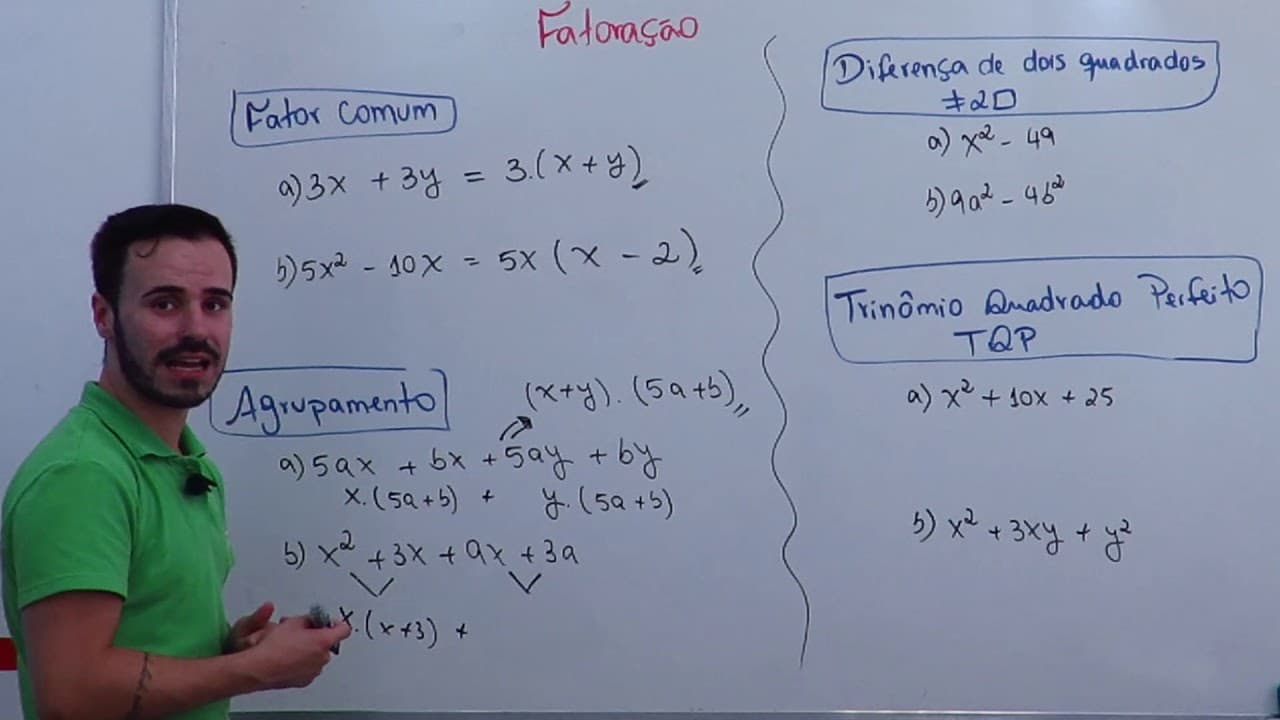 Fatoração
Fator Comum
a) 3x + 3y = 3.(x + y)
b) 5x² - 10x = 5x (x - 2)
Agrupamento
(x+y). (5a+b)
a) 5ax + bx + 5ay + by
x.(5a+b) + y.(5a+b)
b) x² + 3x + ax + 3a
x.(x+3) +
Diferença de dois quadrados
≠2□
a) x² - 49
b) 9a² - 4b²
Trinômio Quadrado Perfeito
TQP
a) x² + 10x + 25
b) x² + 3xy + y²